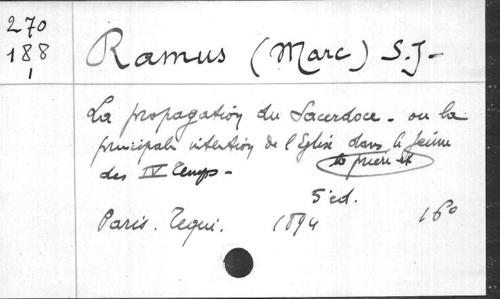 270
188
1
Ramus (Marc) S.J-
La propagation du Sacerdoce - ou la
principale intention de l'Eglise dans le jeûne
la prière et
des IV Temps -
5 éd.
Paris. Tequi. 1894 16o